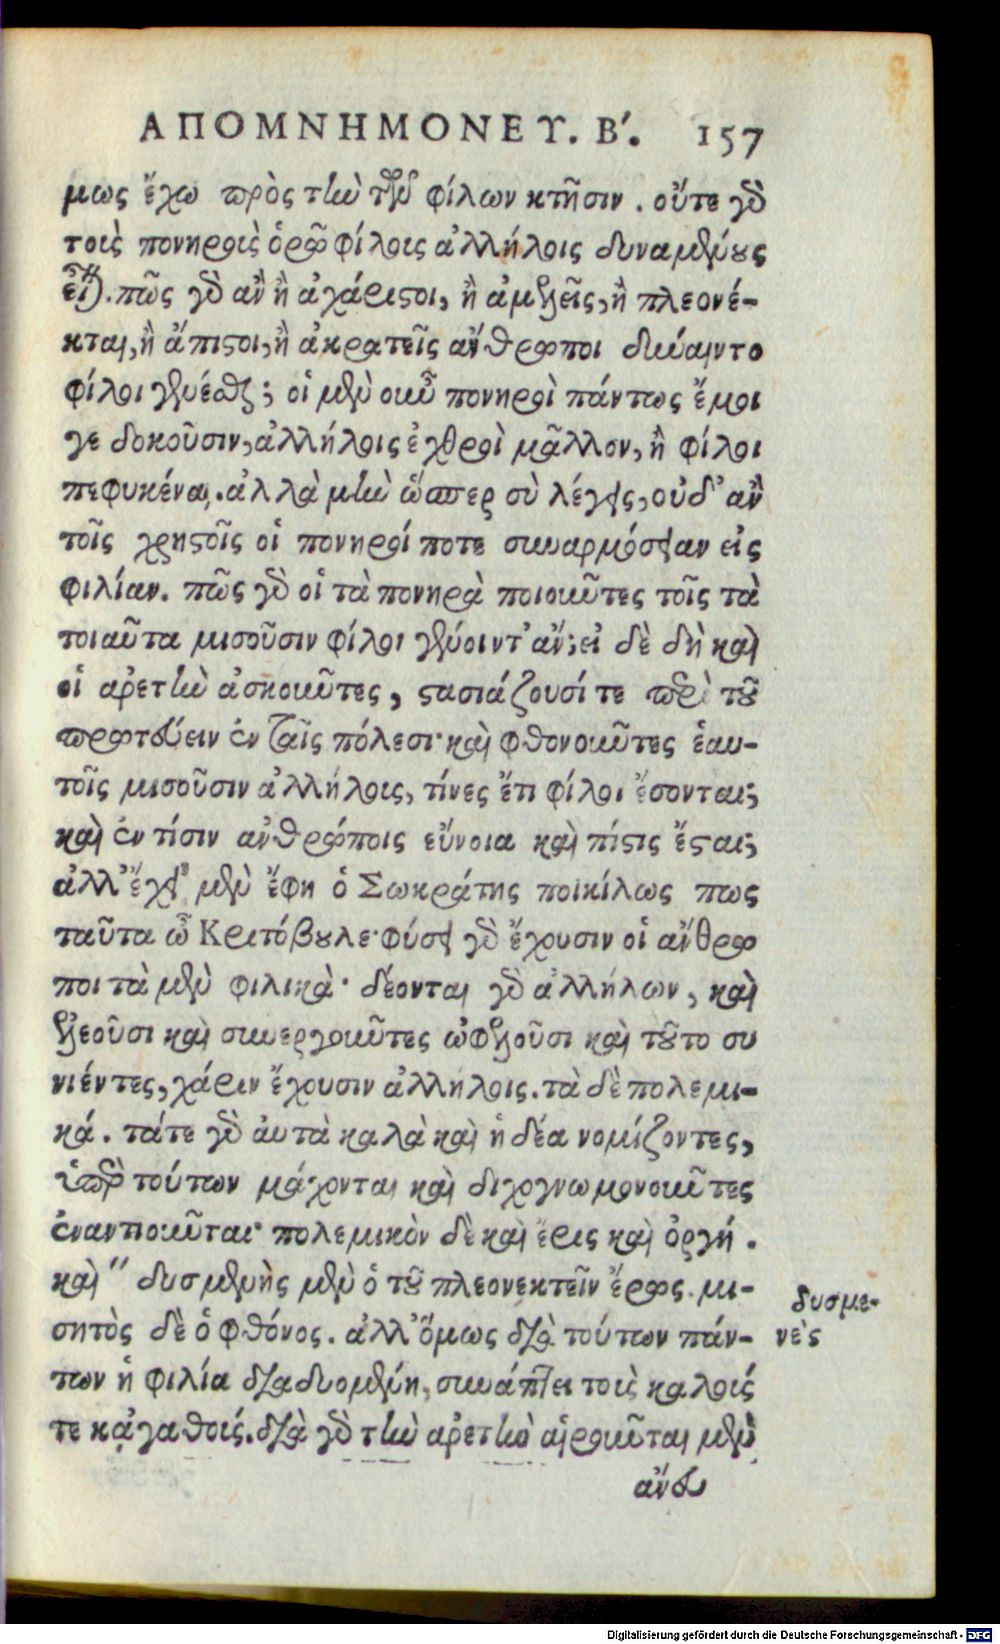 ΑΠΟΜΝΗΜΟΝΕΥ. Β΄. 157
μως ἔχω πρὸς τὴν τῶν φίλων κτῆσιν. οὔτε γὸ
τοῖς πονηροῖς ὁρῶ φίλοις ἀλλήλοις δυναμένους
εἶναι. πῶς γὸ ἂν ἢ ἀχάριστοι, ἢ ἀμελεῖς, ἢ πλεονέ-
κται, ἢ ἄπιστοι, ἢ ἀκρατεῖς ἄνθρωποι δύναιντο
φίλοι γενέσθαι; οἱ μὲν οὖν πονηροὶ πάντως ἔμοι
γε δοκοῦσιν, ἀλλήλοις ἐχθροὶ μᾶλλον, ἢ φίλοι
πεφυκέναι. ἀλλὰ μὴν ὥσπερ σὺ λέγεις, οὐδ' ἂν
τοῖς χρηστοῖς οἱ πονηροί ποτε συναρμόσειαν εἰς
φιλίαν. πῶς γὸ οἱ τὰ πονηρὰ ποιοῦντες τοῖς τὰ
τοιαῦτα μισοῦσιν φίλοι γένοιντ' ἄν; εἰ δὲ δὴ καὶ
οἱ ἀρετὴν ἀσκοῦντες, στασιάζουσί τε περὶ τοῦ
πρωτεύειν ἐν ταῖς πόλεσι· καὶ φθονοῦντες ἑαυ-
τοῖς μισοῦσιν ἀλλήλοις, τίνες ἔτι φίλοι ἔσονται;
καὶ ἐν τίσιν ἀνθρώποις εὔνοια καὶ πίστις ἔσται;
ἀλλ' ἔχει μὲν ἔφη ὁ Σωκράτης ποικίλως πως
ταῦτα ὦ Κριτόβουλε· φύσει γὸ ἔχουσιν οἱ ἄνθρω
ποι τὰ μὲν φιλικά· δέονται γὸ ἀλλήλων, καὶ
ἐλεοῦσι καὶ συνεργοῦντες ὠφελοῦσι καὶ τοῦτο συ
νιέντες, χάριν ἔχουσιν ἀλλήλοις. τὰ δὲ πολεμι-
κά. τάτε γὸ ἀυτὰ καλὰ καὶ ἡδέα νομίζοντες,
ὑπὲρ τούτων μάχονται καὶ διχογνωμονοῦντες
ἐναντιοῦνται· πολεμικὸν δὲ καὶ ἔρις καὶ ὀργή.
καὶ " δυσμενὴς μὲν ὁ τοῦ πλεονεκτεῖν ἔρως. μι-
σητὸς δὲ ὁ φθόνος. ἀλλ' ὅμως διὰ τούτων πάν-
των ἡ φιλία διαδυομένη, συνάπτει τοὺς καλούς
τε κἀγαθούς. διὰ γὸ τὴν ἀρετὴν αἱροῦνται μὲν
ἄνευ
δυσμε-
νὲς
Digitalisierung gefördert durch die Deutsche Forschungsgemeinschaft - DFG